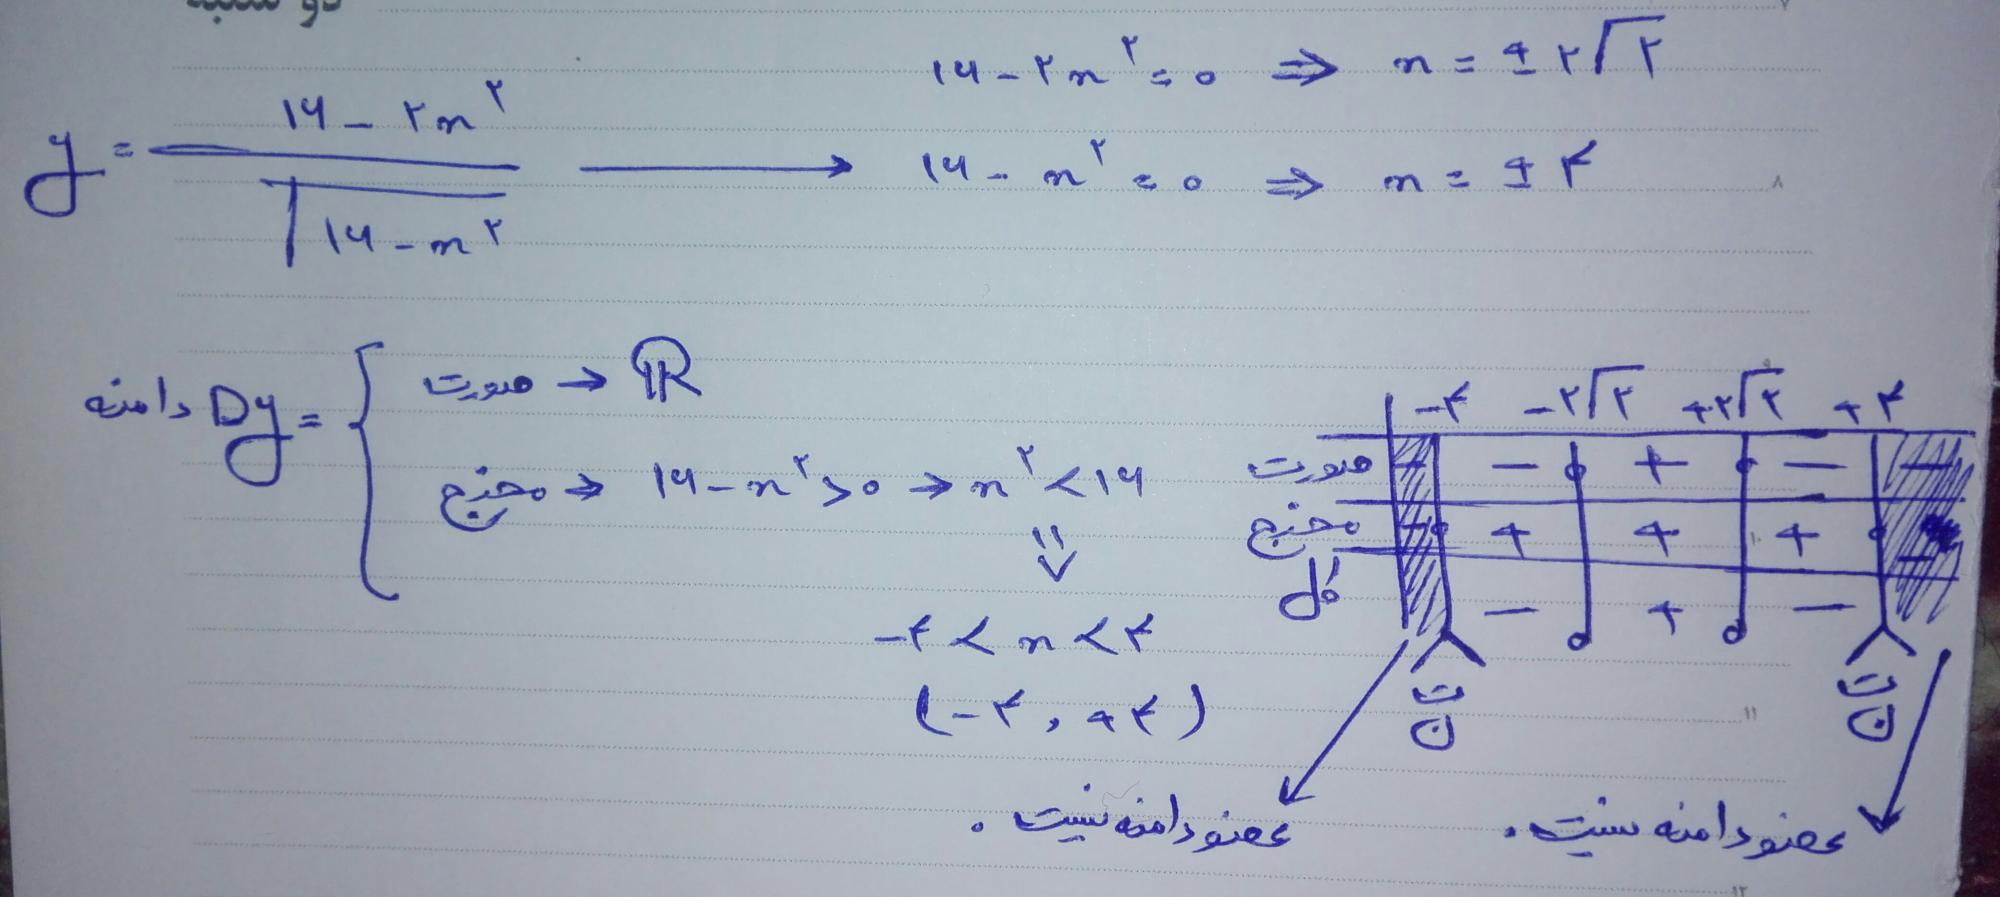 دوشنبه
۱۶ - ۲x^۲ = ۰ ⇒ x = ±۲√۲
y = (۱۶ - ۲x^۲) / √(۱۶ - x^۲) → ۱۶ - x^۲ = ۰ ⇒ x = ±۴
۸
دامنه Dy = { صورت → ℝ
مخرج → ۱۶ - x^۲ > ۰ → x^۲ < ۱۶
⇓
-۴ < x < ۴
(-۴, +۴)
-۴ -۲√۲ +۲√۲ +۴
صورت - - + - -
مخرج - + + + -
کل - + -
ت ن ت ن
۱۱
عضو دامنه نیست .
عضو دامنه نیست .
۱۲